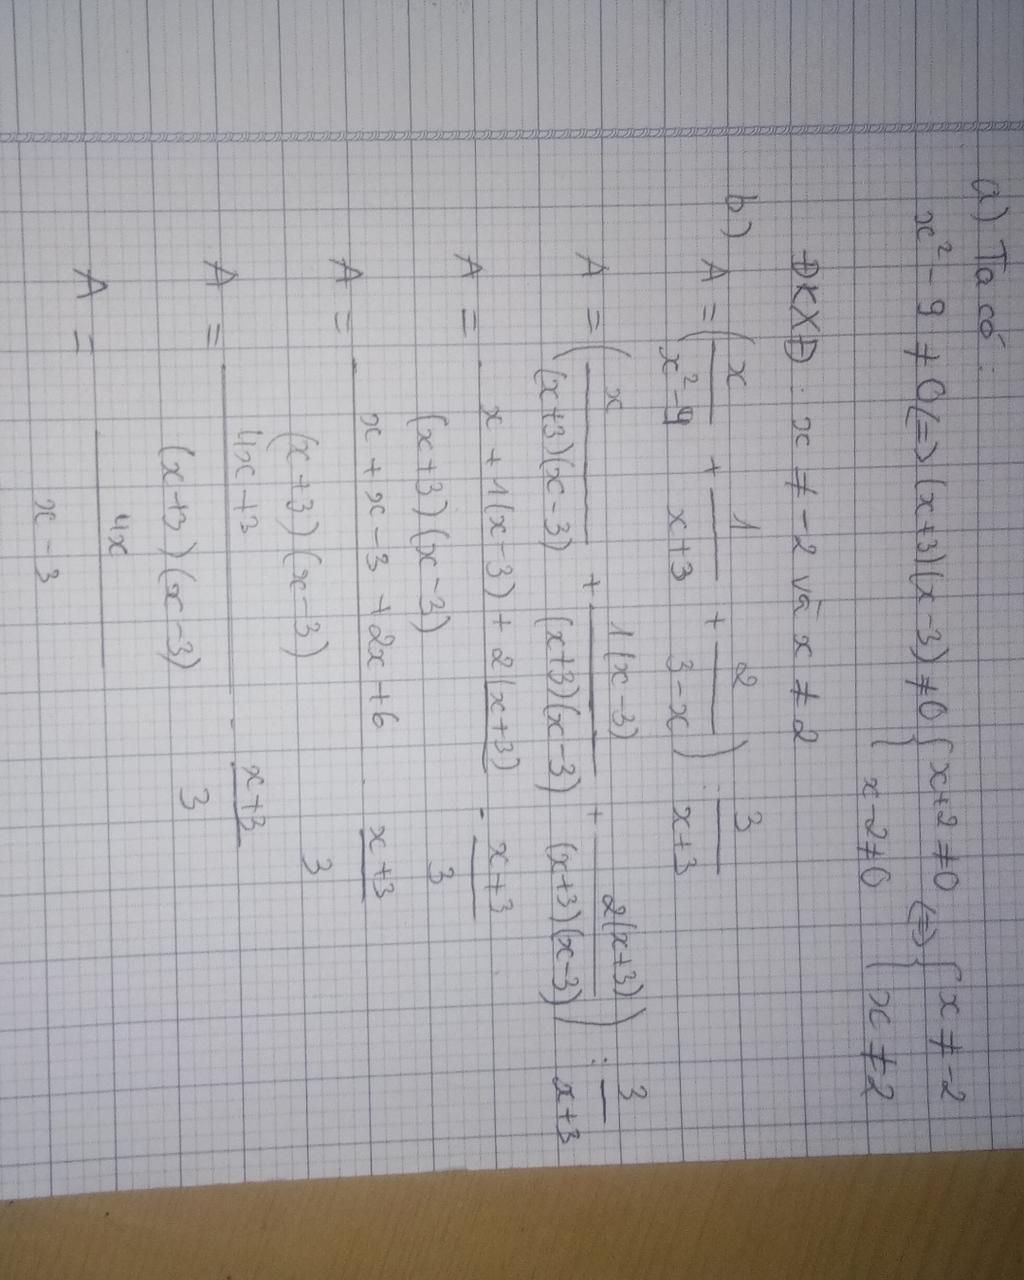 a) Ta có :
x² - 9 ≠ 0 (=) (x+3)(x-3) ≠ 0 { x+2 ≠ 0 (=) { x ≠ -2
x-2 ≠ 0 { x ≠ 2
ĐKXĐ : x ≠ -2 và x ≠ 2
b) A = ( x/(x²-9) + 1/(x+3) + 2/(3-x) ) : 3/(x+3)
A = ( x/((x+3)(x-3)) + 1(x-3)/((x+3)(x-3)) + 2(x+3)/((x+3)(x-3)) ) : 3/(x+3)
A = (x + 1(x-3) + 2(x+3))/((x+3)(x-3)) . (x+3)/3
A = (x + x - 3 + 2x + 6)/((x+3)(x-3)) . (x+3)/3
A = (4x+3)/((x+3)(x-3)) . (x+3)/3
A = 4x/(x-3)